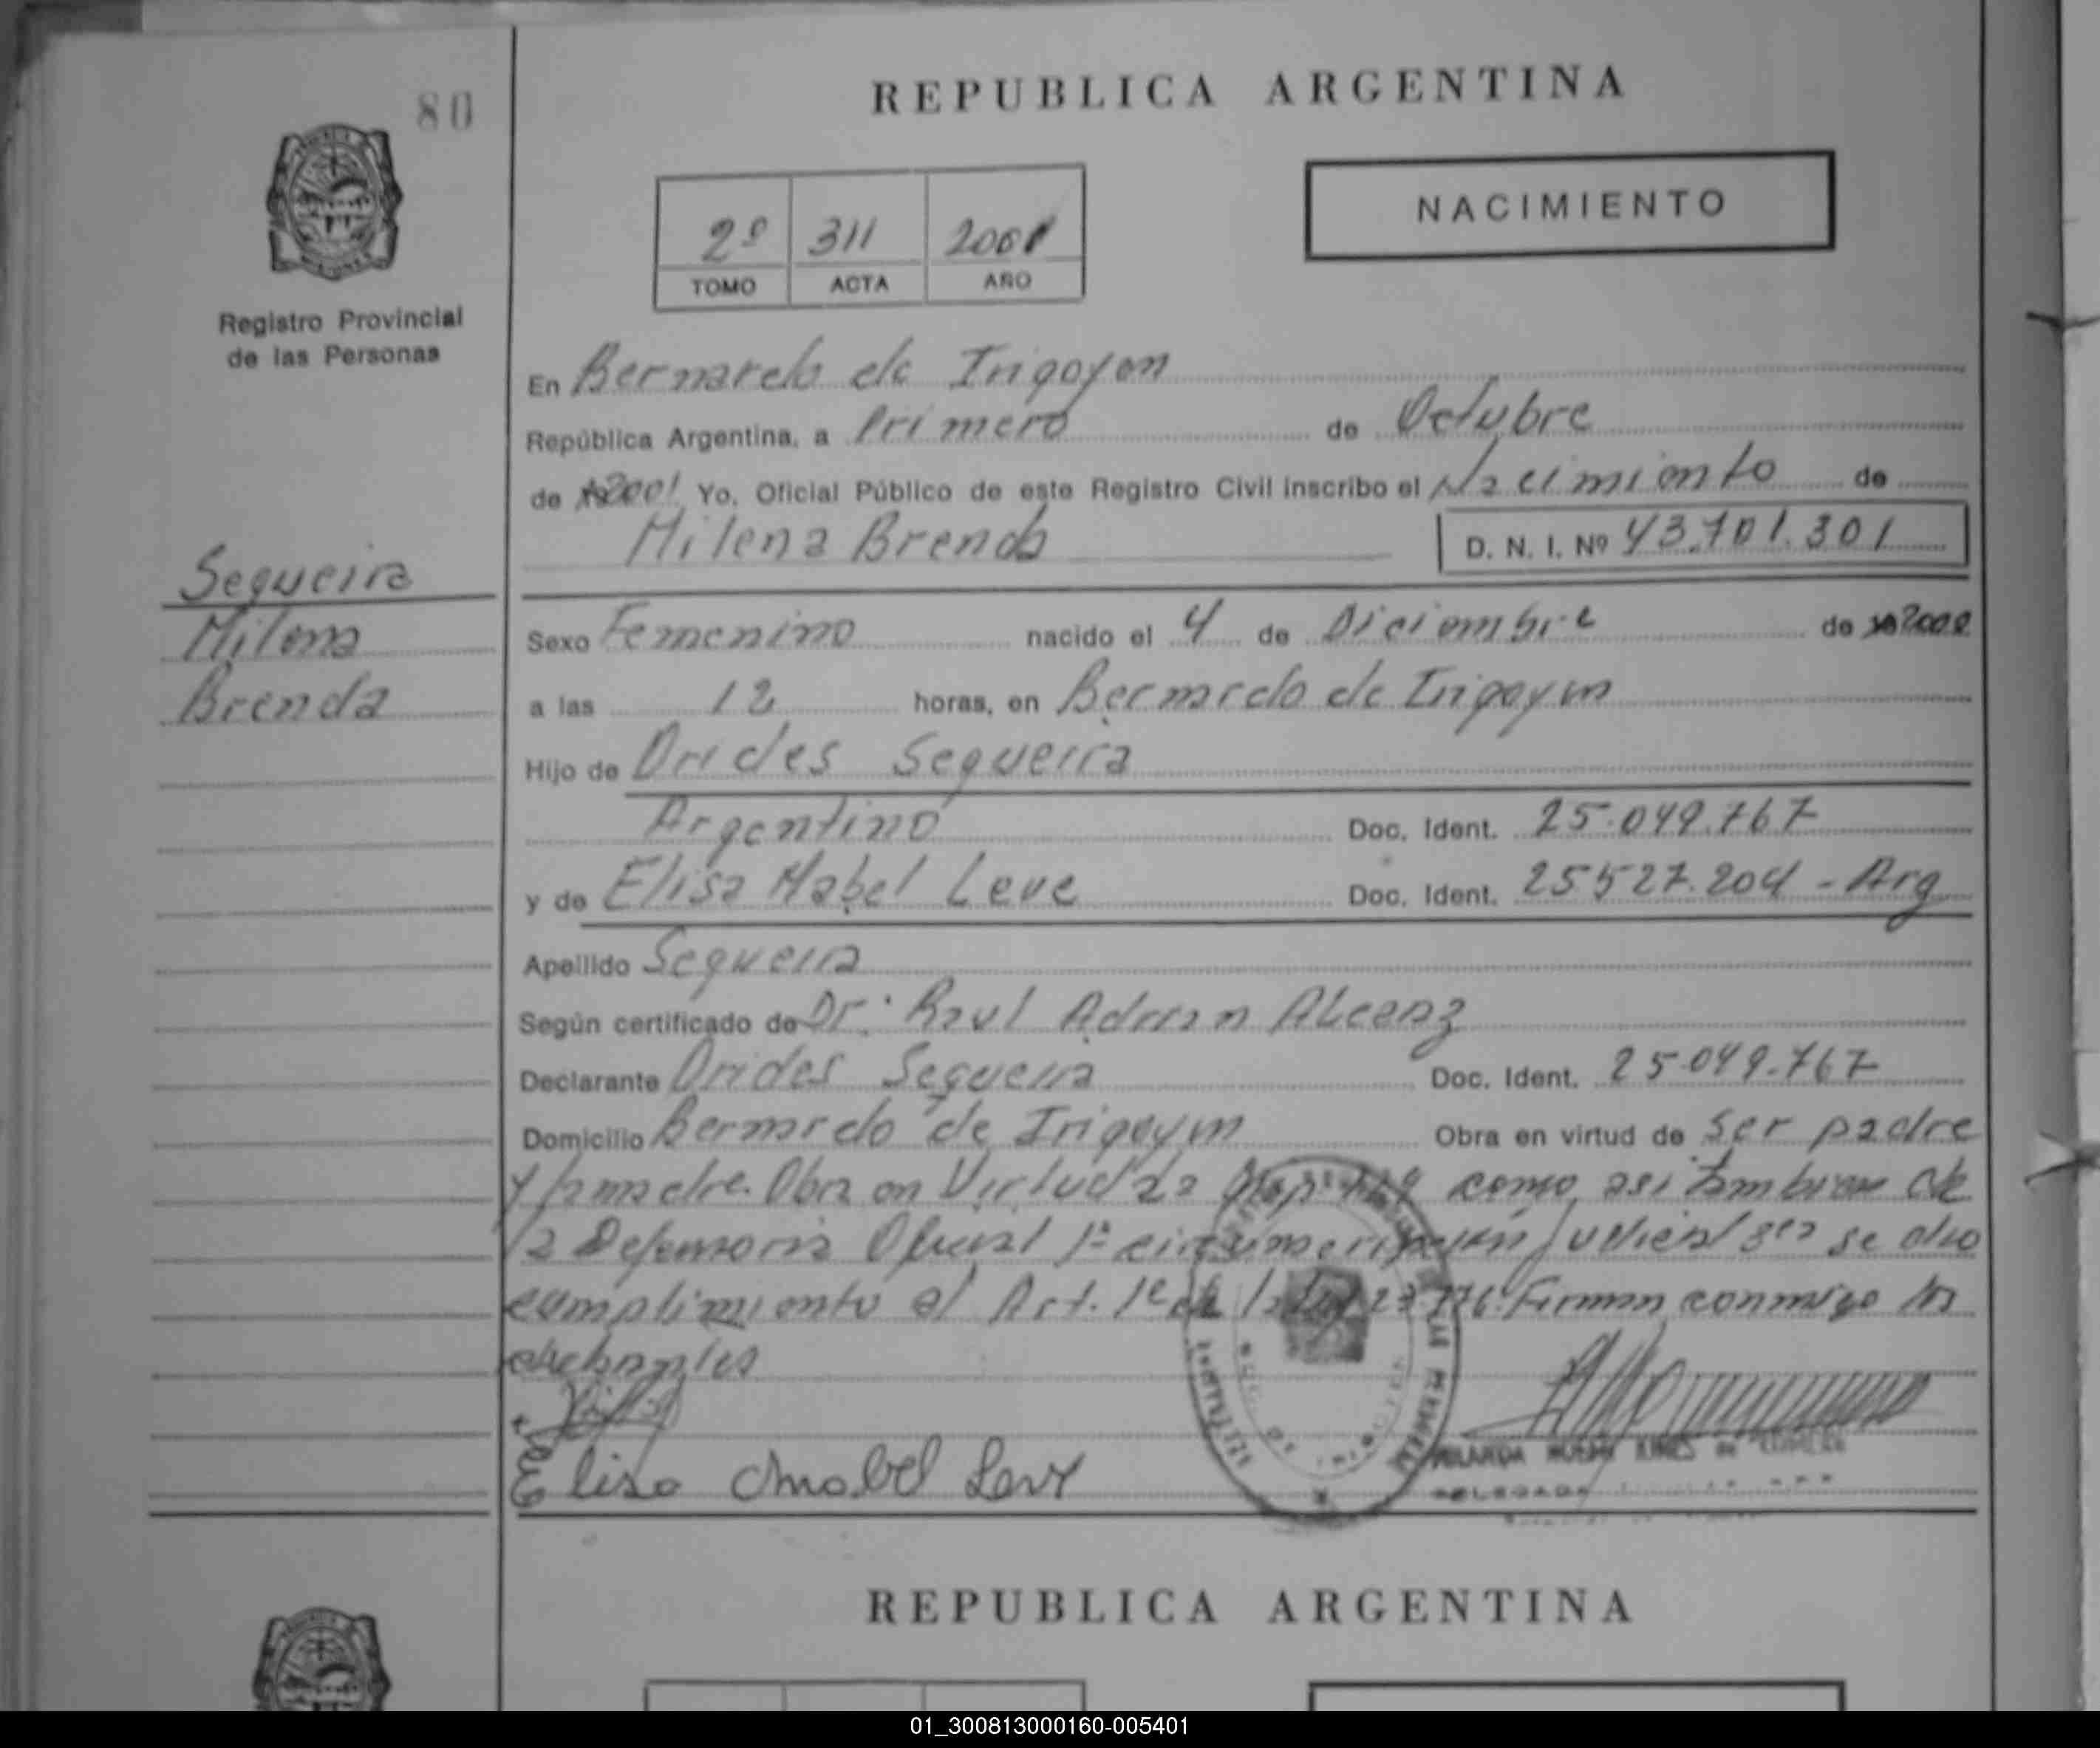 80
REPUBLICA ARGENTINA
NACIMIENTO
2º 311 2001
TOMO ACTA AÑO
Registro Provincial
de las Personas
En Bernardo de Irigoyen
República Argentina, a Primero de Octubre
de 2001 Yo, Oficial Público de este Registro Civil inscribo el Nacimiento de
Milena Brenda D. N. I. Nº 43.701.301
Sequeira
Milena
Brenda
Sexo Femenino nacido el 4 de Diciembre de 2000
a las 12 horas, en Bernardo de Irigoyen
Hijo de Orides Sequeira
Argentino Doc. Ident. 25.049.767
y de Elisa Mabel Leve Doc. Ident. 25527.204 - Arg
Apellido Sequeira
Según certificado de Dr. Raul Adrian Alcaraz
Declarante Orides Sequeira Doc. Ident. 25.049.767
Domicilio Bernardo de Irigoyen Obra en virtud de Ser padre
y la madre. Obra en Virtud como asi tambien de
la Defensoria Oficial 1ª circunscripción Judicial se dio
cumplimiento al Art. 1º de la Ley Firman conmigo los
declarantes
Elisa Mabel Leve
DELEGADA
REPUBLICA ARGENTINA
01_300813000160-005401